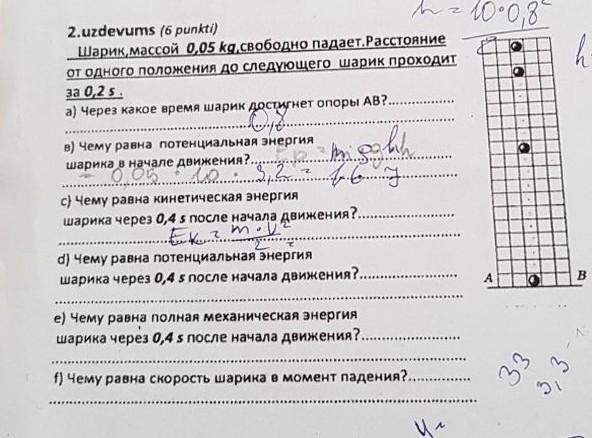 h = 10·0,8²
2.uzdevums (6 punkti)
Шарик,массой 0,05 kg,свободно падает.Расстояние
от одного положения до следующего шарик проходит
за 0,2 s .
а) Через какое время шарик достигнет опоры АВ?
0,8
в) Чему равна потенциальная энергия
шарика в начале движения? Ep = m·g·h
= 0,05 · 10 · 3,2 = 1.6 J
с) Чему равна кинетическая энергия
шарика через 0,4 s после начала движения?
Ek = m·v²
2 =
d) Чему равна потенциальная энергия
шарика через 0,4 s после начала движения?
е) Чему равна полная механическая энергия
шарика через 0,4 s после начала движения?
f) Чему равна скорость шарика в момент падения?
A B
h